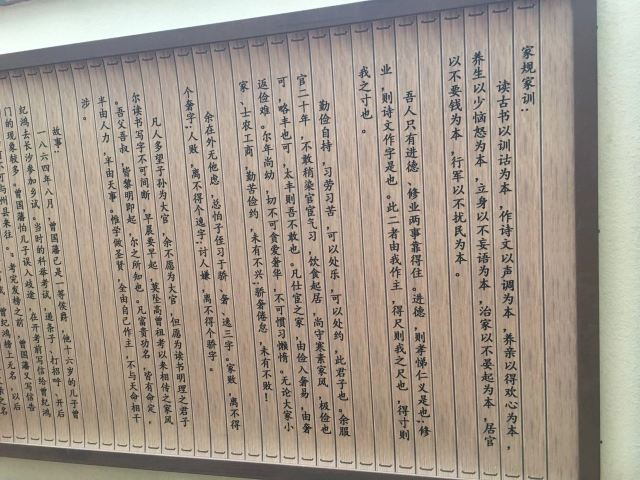 家规家训：
读古书以训诂为本，作诗文以声调为本，养亲以得欢心为本，
养生以少恼怒为本，立身以不妄语为本，治家以不晏起为本，居官
以不要钱为本，行军以不扰民为本。
吾人只有进德、修业两事靠得住。进德，则孝悌仁义是也；修
业，则诗文作字是也。此二者由我作主，得尺则我之尺也，得寸则
我之寸也。
勤俭自持，习劳习苦，可以处乐，可以处约，此君子也。余服
官二十年，不敢稍染官宦气习，饮食起居，尚守寒素家风，极俭也
可，略丰也可，太丰则吾不敢也。凡仕宦之家，由俭入奢易，由奢
返俭难。尔年尚幼，切不可贪爱奢华，不可惯习懒惰。无论大家小
家、士农工商，勤苦俭约，未有不兴；骄奢倦怠，未有不败！
余在外无他虑，总怕子侄习于骄、奢、逸三字。家败，离不得
个奢字；人败，离不得个逸字；讨人嫌，离不得个骄字。
凡人多望子孙为大官，余不愿为大官，但愿为读书明理之君子
尔读书写字不可间断，早晨要早起，莫坠高曾祖考以来相传之家风
。吾父吾叔，皆黎明即起，尔之所知也。凡富贵功名，皆有命定，
半由人力，半由天事。惟学做圣贤，全由自己作主，不与天命相干
涉。
故事：
一八六四年八月，曾国藩已是一等侯爵，他十六岁的儿子曾
纪鸿去长沙参加乡试。当时的科举考试，递条子、打招呼、开后
门的现象较多，曾国藩怕儿子误入歧途，在开考前写信给曾纪鸿
可与州县来往。。考完发榜之前，曾国藩又写信告
曾纪鸿榜上无名，以后